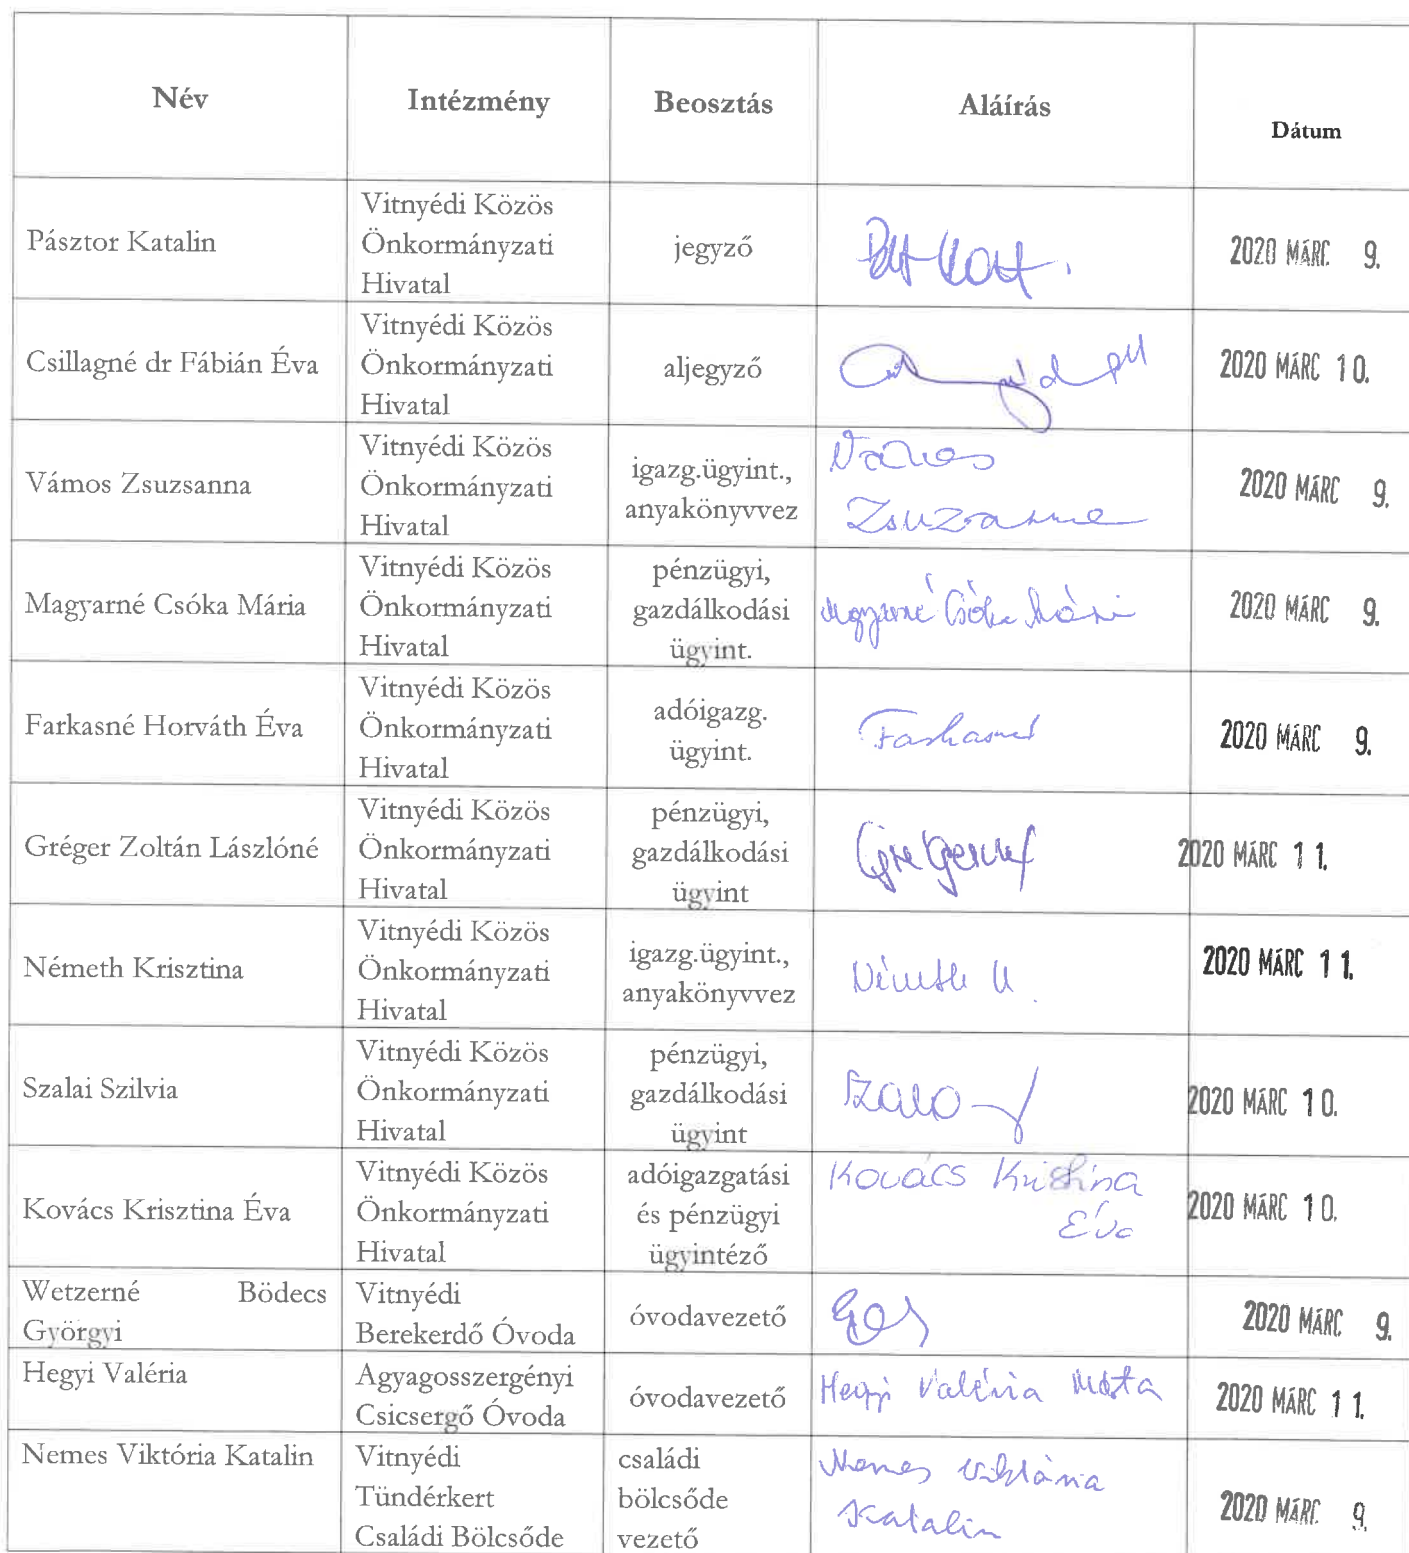 Név Intézmény Beosztás Aláírás Dátum
Pásztor Katalin
Vitnyédi Közös
Önkormányzati
Hivatal
jegyző
2020 MÁRC 9.
Csillagné dr Fábián Éva
Vitnyédi Közös
Önkormányzati
Hivatal
aljegyző
2020 MÁRC 10.
Vámos Zsuzsanna
Vitnyédi Közös
Önkormányzati
Hivatal
igazg.ügyint.,
anyakönyvvez
Vámos
Zsuzsanna
2020 MÁRC 9.
Magyarné Csóka Mária
Vitnyédi Közös
Önkormányzati
Hivatal
pénzügyi,
gazdálkodási
ügyint.
Magyarné Csóka Mária
2020 MÁRC 9.
Farkasné Horváth Éva
Vitnyédi Közös
Önkormányzati
Hivatal
adóigazg.
ügyint.
Farkasné
2020 MÁRC 9.
Gréger Zoltán Lászlóné
Vitnyédi Közös
Önkormányzati
Hivatal
pénzügyi,
gazdálkodási
ügyint
2020 MÁRC 11.
Németh Krisztina
Vitnyédi Közös
Önkormányzati
Hivatal
igazg.ügyint.,
anyakönyvvez
Németh K.
2020 MÁRC 11.
Szalai Szilvia
Vitnyédi Közös
Önkormányzati
Hivatal
pénzügyi,
gazdálkodási
ügyint
2020 MÁRC 10.
Kovács Krisztina Éva
Vitnyédi Közös
Önkormányzati
Hivatal
adóigazgatási
és pénzügyi
ügyintéző
Kovács Krisztina
Éva
2020 MÁRC 10.
Wetzerné Bödecs
Györgyi
Vitnyédi
Berekerdő Óvoda
óvodavezető
2020 MÁRC 9.
Hegyi Valéria
Agyagosszergényi
Csicsergő Óvoda
óvodavezető
Hegyi Valéria
2020 MÁRC 11.
Nemes Viktória Katalin
Vitnyédi
Tündérkert
Családi Bölcsőde
családi
bölcsőde
vezető
Nemes Viktória
Katalin
2020 MÁRC. 9.